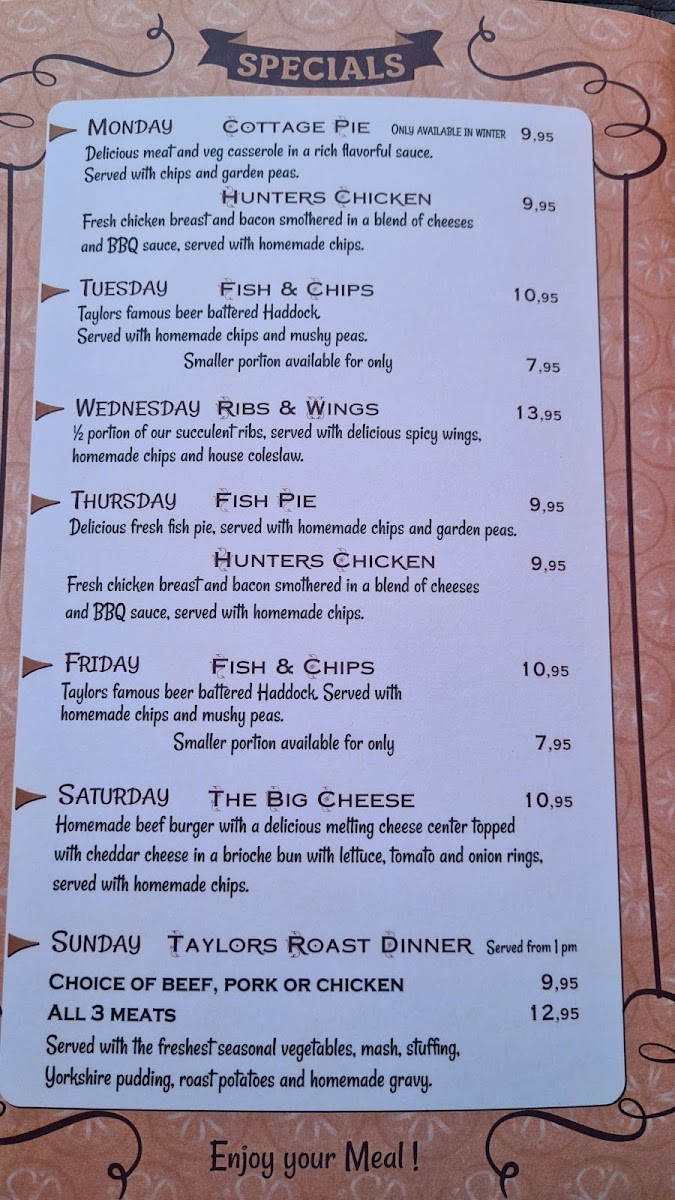 SPECIALS
MONDAY COTTAGE PIE ONLY AVAILABLE IN WINTER 9,95
Delicious meat and veg casserole in a rich flavorful sauce.
Served with chips and garden peas.
HUNTERS CHICKEN 9,95
Fresh chicken breast and bacon smothered in a blend of cheeses
and BBQ sauce, served with homemade chips.
TUESDAY FISH & CHIPS 10,95
Taylors famous beer battered Haddock.
Served with homemade chips and mushy peas.
Smaller portion available for only 7,95
WEDNESDAY RIBS & WINGS 13,95
½ portion of our succulent ribs, served with delicious spicy wings,
homemade chips and house coleslaw.
THURSDAY FISH PIE 9,95
Delicious fresh fish pie, served with homemade chips and garden peas.
HUNTERS CHICKEN 9,95
Fresh chicken breast and bacon smothered in a blend of cheeses
and BBQ sauce, served with homemade chips.
FRIDAY FISH & CHIPS 10,95
Taylors famous beer battered Haddock. Served with
homemade chips and mushy peas.
Smaller portion available for only 7,95
SATURDAY THE BIG CHEESE 10,95
Homemade beef burger with a delicious melting cheese center topped
with cheddar cheese in a brioche bun with lettuce, tomato and onion rings,
served with homemade chips.
SUNDAY TAYLORS ROAST DINNER Served from 1 pm
CHOICE OF BEEF, PORK OR CHICKEN 9,95
ALL 3 MEATS 12,95
Served with the freshest seasonal vegetables, mash, stuffing,
Yorkshire pudding, roast potatoes and homemade gravy.
Enjoy your Meal !